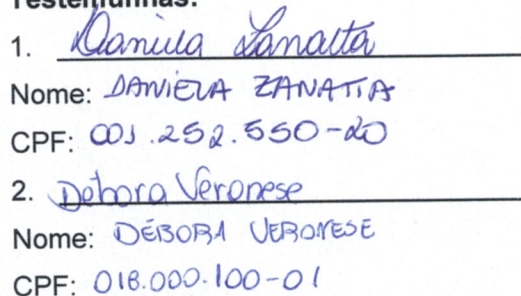 Testemunhas:
1. Daniela Zanatta
Nome: DANIELA ZANATTA
CPF: 001.252.550-20
2. Débora Veronese
Nome: DÉBORA VERONESE
CPF: 018.000.100-01